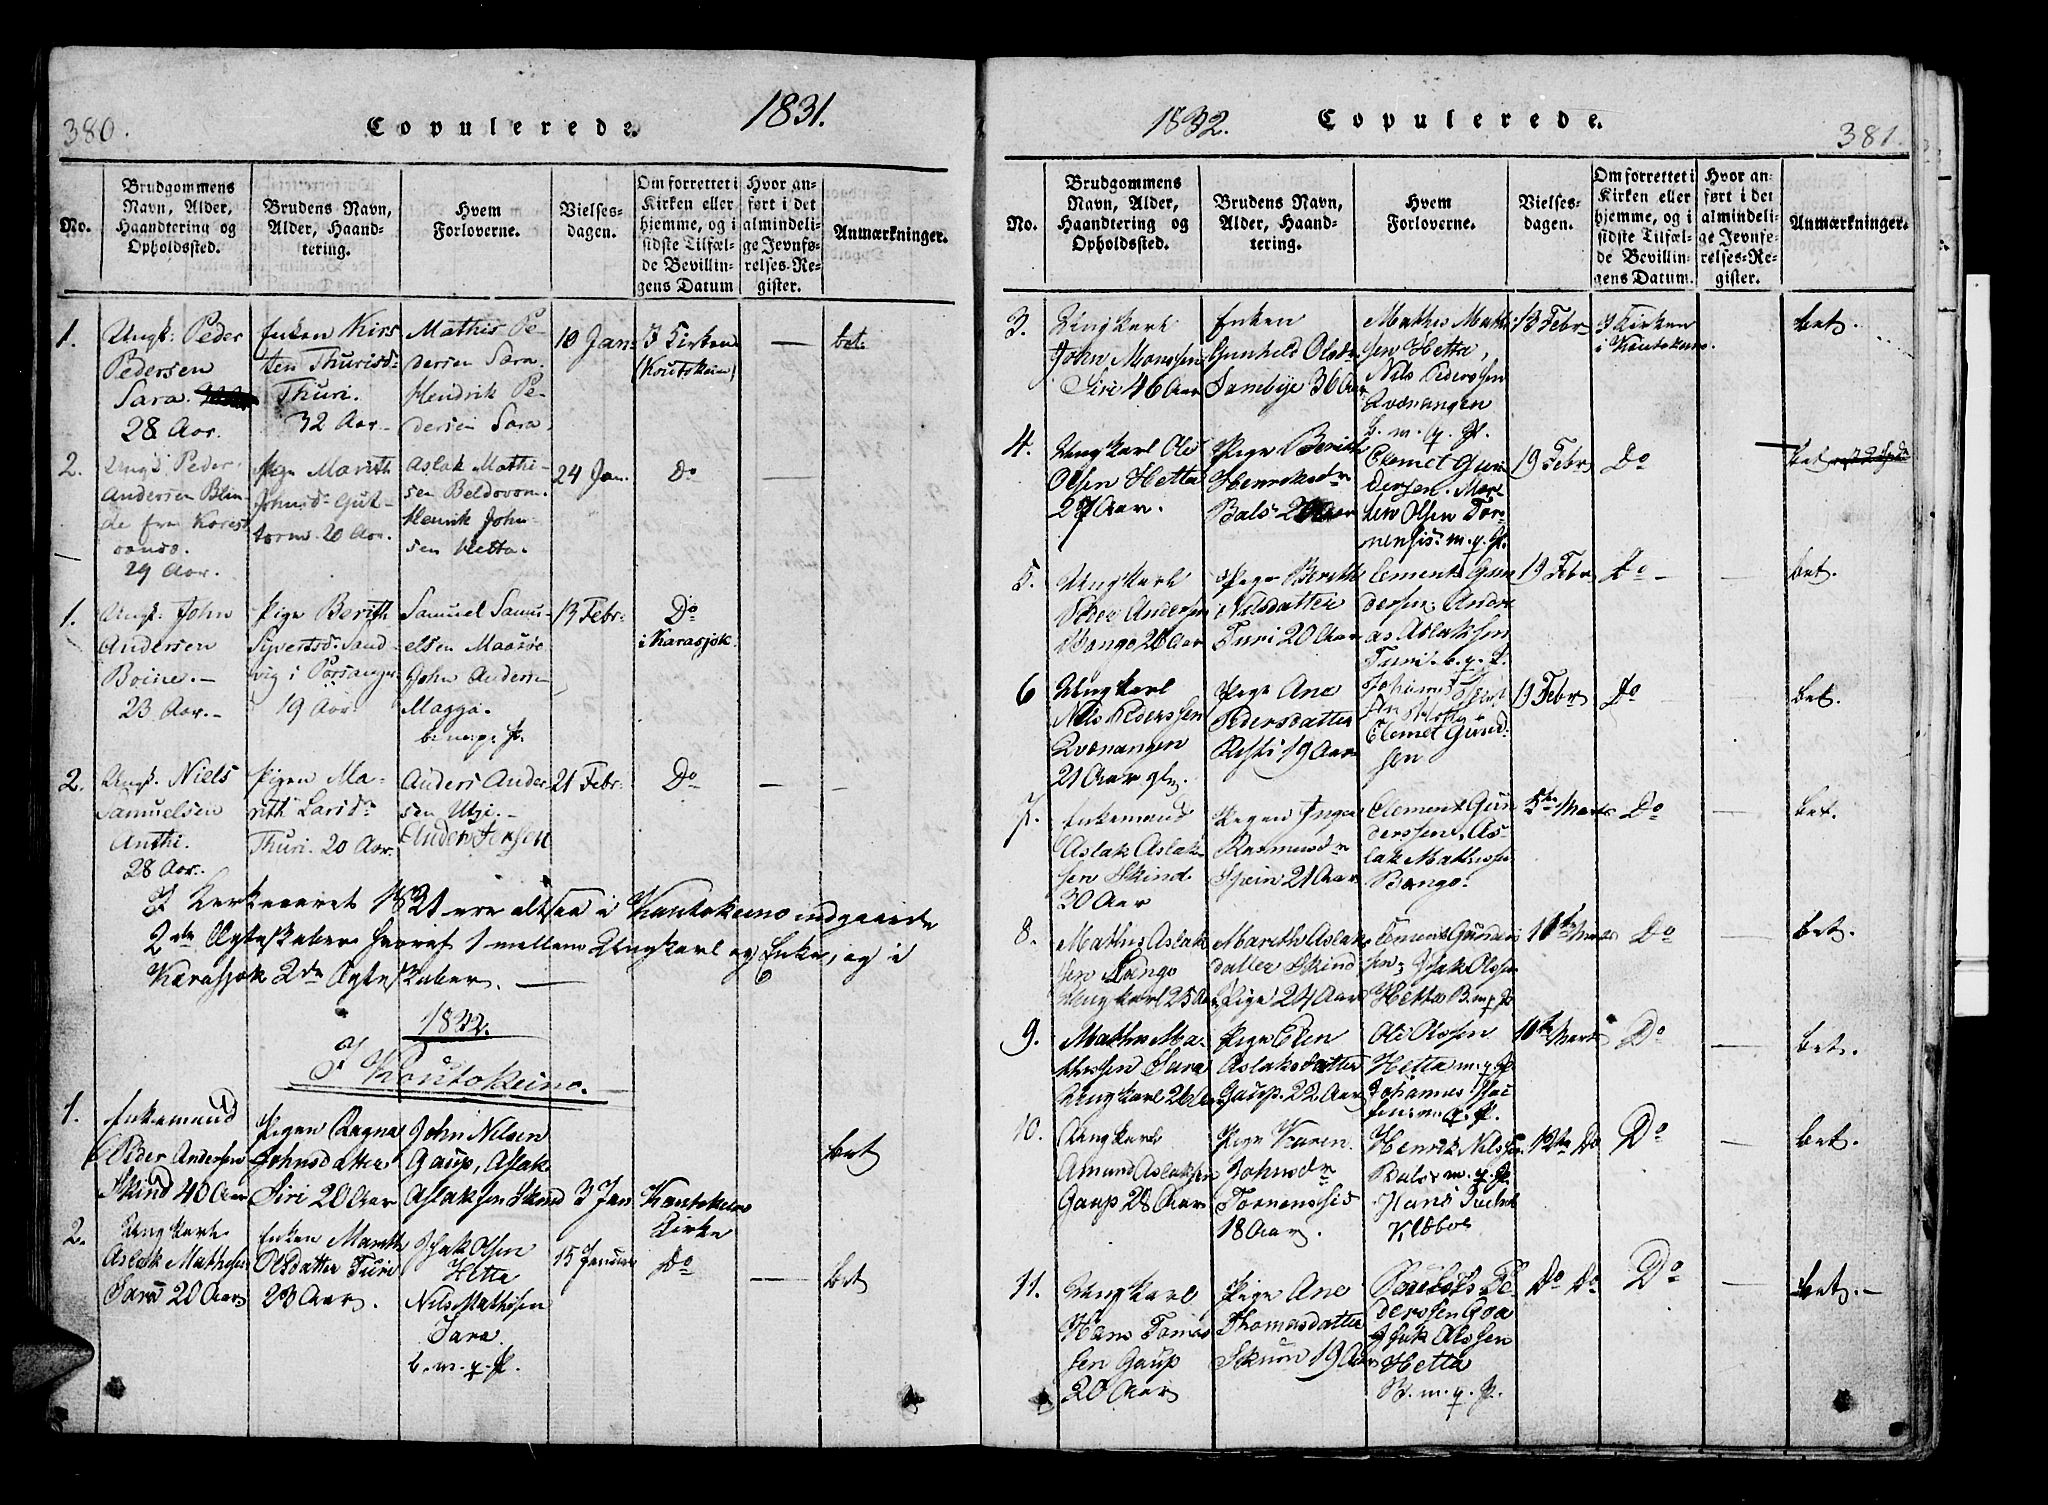 380.
Copulerede.
1831.
No.
Brudgommens
Navn, Alder,
Haandtering og
Opholdssted.
Brudens Navn,
Alder, Haand-
tering.
Hvem
Forloverne.
Vielses-
dagen.
Om forrettet i
Kirken eller
hjemme, og i
sidste Tilfæl-
de Bevillin-
gens Datum
Hvor an-
ført i det
almindeli-
ge Jevnfø-
relses-Re-
gister.
Anmærkninger.
1.
Ungk: Peder
Pedersen
Sara.
28 Aar.
Enken Kirs
ten Thurisd-
Thuri.
32 Aar.
Mathis Pe-
dersen Sara.
Hendrik Pe-
dersen Sara.
10 Jan:
I Kirken
(Koutokeino)
—
bet.
2.
Ungk: Peder
Andersen Blin-
de fra
29 Aar.
Pige Marith
Johnsd-
20 Aar.
Aslak Mathi-
sen Beldovom.
Henrik John-
sen Hetta.
24 Jan.
Do
—
1.
Ungk: John
Andersen
Boine.—
23 Aar.—
Pige Berith
Syvertsd: Sand-
vig i Porsanger
19 Aar.
Samuel Samu-
elsen Maasøe
John Andersen
Magga.
13 Febr:
Do
i Karasjok.
2.
Ungk. Niels
Samuelsen
Anthi.
28 Aar.
Pigen Ma-
rith Larsdr
Thuri. 20 Aar.
Anders Ander-
sen Utzi.—
21 Febr:
Do
—
I Kirkeaaret 1831 ere altsaa i Koutokeino indgaaede
2de Ægteskaber hvoraf 1 mellem Ungkarl og Enke, og i
Karasjok 2de Ægteskaber.—
1832.
I Koutokeino.
1.
Enkemand
Peder Andersen
Skind 40 Aar
Pigen Ragna
Johnsdatter
Siri 20 Aar
John Nilsen
Gaup, Aslak
Aslaksen Skind
3 Jan
Kautokeino
Kirke
bet
2.
Ungkarl
Aslak Mathisen
Sara 20 Aar
Enken Marith
Olsdatter Turi
23 Aar.
Isak Olsen
Hetta
Nils Mathisen
Sara.
b. m. q. P.
15 Januar
Do
—
bet
1832.
Copulerede.
381.
No.
Brudgommens
Navn, Alder,
Haandtering og
Opholdssted.
Brudens Navn,
Alder, Haand-
tering.
Hvem
Forloverne.
Vielses-
dagen.
Om forrettet i
Kirken eller
hjemme, og i
sidste Tilfæl-
de Bevillin-
gens Datum.
Hvor an-
ført i det
almindeli-
ge Jevnfø-
relses-Re-
gister.
Anmærkninger.
3.
Ungkarl
John Monssen
Siri 46 Aar
Enken
Gunhild Olsdr
36 Aar
Mathis Mathi
sen Hetta,
Nils Pederssen
Qvænangen
b. m. q. P.
13 Febr
I Kirken
i Koutokeino.
bet.
4.
Ungkarl Ole
Olsen Hetta
27 Aar.
Pige Berith
Henriksdr
Bals
Clemet Gun
dersen.
m. q. P.
19 Febr
Do
bet
5.
Ungkarl
Andersen
Pige Berith
Nilsdatter
Turi 20 Aar
Clement Gun
dersen, Andre
as Aslaksen
Turi. b. q. P.
19 Febr
Do
—
bet.
6
Ungkarl
Nils Pederssen
Qvænangen
21 Aar gl.
Pige Ane
Pedersdatter
19 Aar
Clemet Gund
sen
19 Febr
Do
bet.
7.
Enkemand
Aslak Aslak
sen Skind
30 Aar
Pigen Inger
Rasmusdr
Spein 21 Aar
Clement Gun
derssen, As-
lak Mathissen
Bongo.
5te Marts
Do
—
bet.
8.
Mathis Aslak
sen
Ungkarl 25 Aar
Marith Aslaks
datter Skind
Pige 24 Aar
Clement Gunder
sen, Isak Olssen
Hetta B. m. q. P.
10te Marts
Do
—
bet.
9.
Mathis Ma-
thissen Sara
Ungkarl 26 Aar
Pige Elen
Aslaksdatter
Gaup. 22 Aar
Ole Olssen
Hetta m. q. P.
Johannes Isac
sen m. q. P.
10te Marts
Do
—
bet.
10.
Ungkarl
Amund Aslaksen
Gaup 28 Aar
Pige Karen
Johnsdr
Tornensis
18 Aar.
Henrik Nilssen
Bals m. q. P.
Hans
Klæboe
12te Do
Do
—
bet.
11.
Ungkarl
Hans Tomas
sen Gaup
20 Aar
Pige Ane
Thomasdatter
Skum 19 Aar
Pe-
derssen Goa
Isak Olssen
Hetta
B. m. q. P.
Do Do
Do
—
bet.—